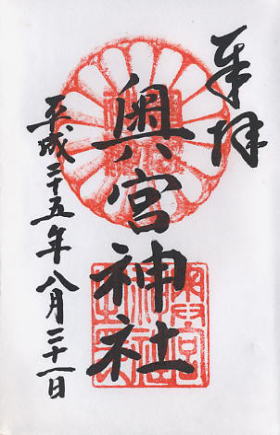 奉拝
奥宮神社
平成二十五年八月二十一日